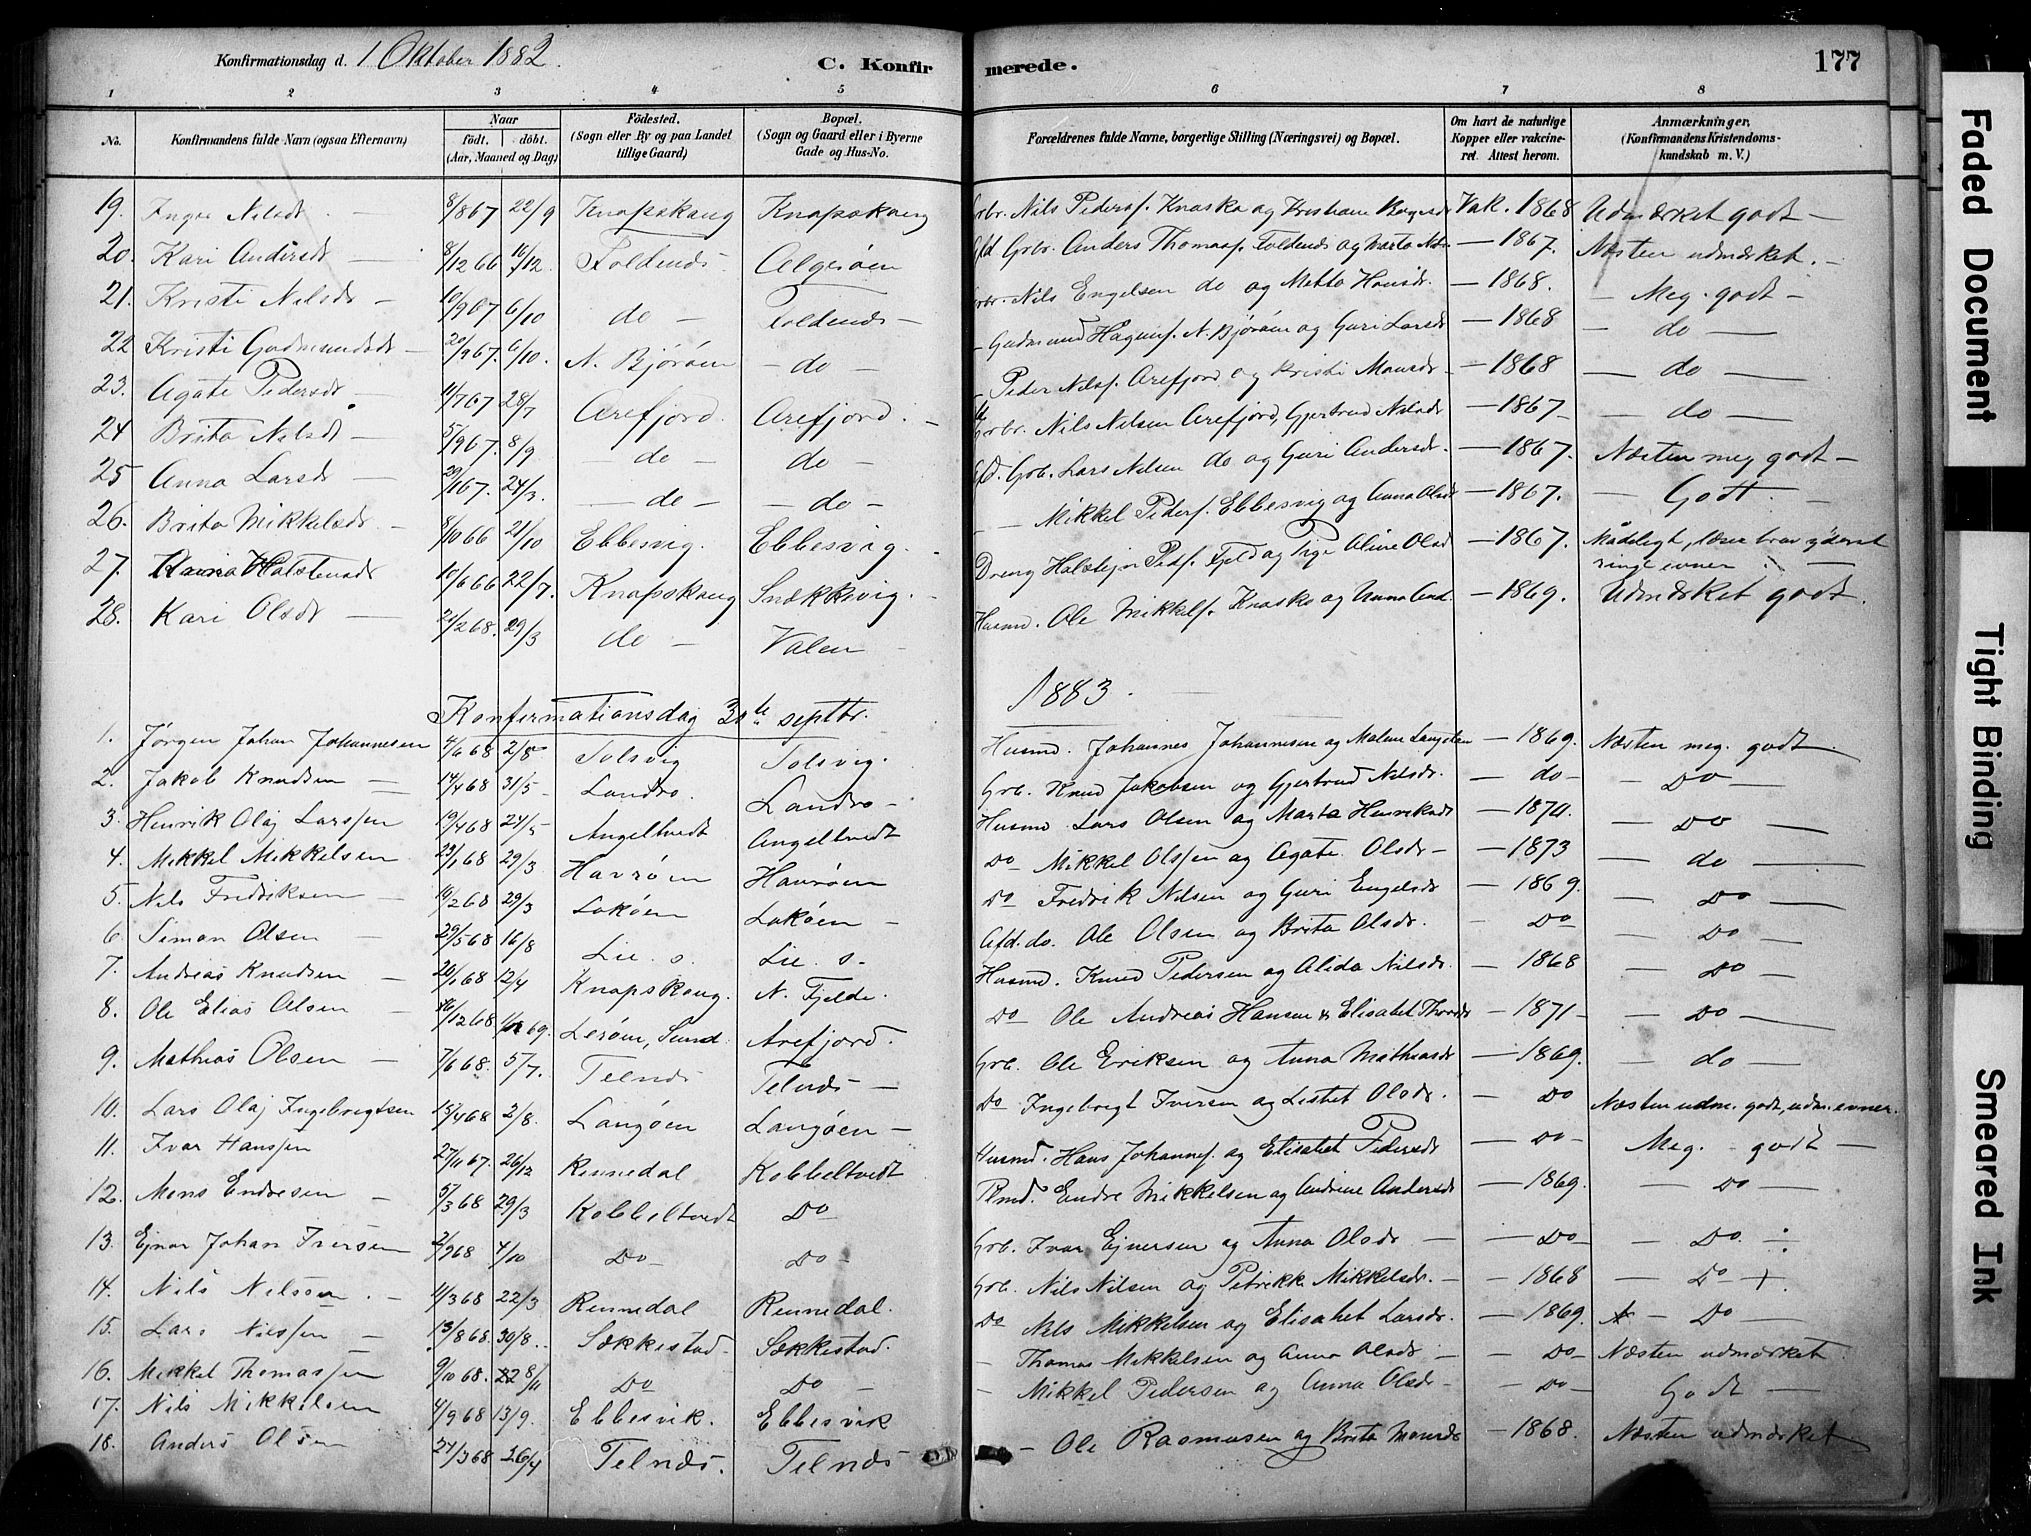 Konfirmationsdag d. 1 Oktober 1882. C. Konfirmerede. 177
1 2 3 4 5 6 7 8
No. Konfirmandens fulde Navn (ogsaa Efternavn) Naar født. døbt. (Aar, Maaned og Dag) Fødested. (Sogn eller By og paa Landet tillige Gaard) Bopæl. (Sogn og Gaard eller i Byerne Gade og Hus-No. Forældrenes fulde Navne, borgerlige Stilling (Næringsvei) og Bopæl. Om havt de naturlige Kopper eller vakcineret. Attest herom. Anmærkninger, (Konfirmandens Kristendomskundskab m. V.)
19. Nilsdt. 8/8 67 22/9 Knapskaug Knapskaug Grbr. Nils Peders. Knaska og Vak. 1868 Udmærket godt —
20. Kari Andersdt — 8/12 66 16/12. Foldnæs. Algerøen Anders Thomass. Foldnæs og Marta — 1867. Næsten udmærket. —
21. Kristi Nilsdt — 10/9 67 6/10 do — Foldnæs — Nils Engelsen do og Metta Hansdt. — 1868. — Meg. godt —
22 Kristi Gudmundsdt — 20/9 67. 6/10. N. Bjørøen — do — Gudmund N. Bjørøen og Guri Larsdt — 1868 — do —
23. Agate Pedersdt — 11/7 67 28/7 Arefjord. Arefjord. — Peder Nils. Arefjord og Kristi Monsdt — 1868 — do —
24 Brita Nilsdt — 5/9 67. 8/9 — do — do — Grbr. Nils Nilsen Arefjord, Gjertrud Nilsdt — 1867. — do —
25 Anna Larsdt — 29/1 67. 24/3. — do — — do — Grb. Lars Nilsen do og Guri Andersdt. — 1867. Næsten meg godt —
26. Brita Mikkelsdt. — 8/10 66 21/10 Ebbesvig. Ebbesvig. — Mikkel Peders. Ebbesvig og Anna Olsdt — 1867. — Godt. —
27. Halstensdt 10/6 66 22/7. Knapskaug Snekkevig. Dreng Halstejn Peds. Fjeld og Pige Oline Olsd — 1867. Mådeligt, læser bra yderst ringe evner. —
28. Kari Olsdt — 24/2 68. 29/3 do — Valen — Husmd. Ole Mikkels. Knaska og Anna And. — 1869. Udmærket godt.
Konfirmationsdag 30te septbr. 1883.
1. Jørgen Johan Johannesen 4/6 68 2/8 Tolsvig Tolsvig. Husmd. Johannes Johannesen og Malene — 1869. Næsten meg. godt.
2. Jakob Knudsen — 14/4 68 31/5 — Landro. Landro — Grb. Knud Jakobsen og Gjertrud Nilsdt. — do — — Do —
3. Henrik Olaj Larssen 19/4 68 24/5 Angeltvedt Angeltvedt Husmd. Lars Olsen og Marta Henriksdt — 1870. — Do —
4. Mikkel Mikkelsen 23/1 68 29/3 Havrøen Havrøen Do Mikkel Olssen og Agate Olsdt — — 1873 — do —
5. Nils Fredriksen — 10/2 68 29/3 Lokøen Lokøen Do Fredrik Nilsen og Guri Engelsdt — 1869. — Do —
6 Simon Olsen — 29/5 68 16/8 Lie. s. Lie. s. Afd. do. Ole Olsen og Brita Olsdt. — Do — Do —
7. Andreas Knudsen — 20/1 68 12/4 Knapskaug. N. Fjelde. Husmd. Knud Pedersen og Alida Nilsdt. — 1868 — Do —
8. Ole Elias Olsen — 16/12 68 69. Lerøen, Sund. Arefjord. Do Ole Andreas Hansen & Elisabet — 1871 — — Do —
9. Mathias Olsen — 7/6 68. 5/7. Telnæs Telnæs — Grb. Ole Eriksen og Anna Mathiasdt — 1869. — do —
10. Lars Olaj Ingebrigtsen 15/4 68 2/8. Langøen Langøen — Do Ingebrigt Iversen og Lisbet Olsdt. — Do Næsten udm. godt, udm. evner.
11. Ivar Hanssen 27/11 67. 26/12 Rennedal Kobbeltvedt Husmd. Hans Johannes. og Elisabet Pedersdt — Do — Meg. godt —
12. Mons Endresen — 5/3 68 29/3 Kobbeltvedt Do Plmd. Endre Mikkelsen og Andrine Andersdt — 1869. — Do —
13. Ejnar Johan Iversen 2/9 68 4/10 Do — Do — Grb. Ivar Ejnersen og Anna Olsdt — — Do — — Do. ÷
14. Nils Nilsen. — 4/3 68 22/3 Rennedal Rennedal. Grb. Nils Nilsen og Petrikke Mikkelsdt. — — 1868 — Do +
15. Lars Nilssen — 13/8 68. 30/8. Sækkestad Sækkestad. Do Nils Mikkelsen og Elisabet Larsdt. — 1869. — Do —
16. Mikkel Thomassen 9/10 68. 8/11 Do Do — — Thomas Mikkelsen og Anna Olsdt — — Do — Næsten udmærket.
17. Nils Mikkelsen 4/9 68 13/9. Ebbesvik. Ebbesvik — Mikkel Pedersen og Anna Olsdt — — Do — Godt —
18. Anders Olsen 24/3 68 26/4 Telnæs. Telnæs — Ole Rasmusen og Brita Monsdt — 1868. Næsten udmærket.
Faded Document
Tight Binding
Smeared Ink